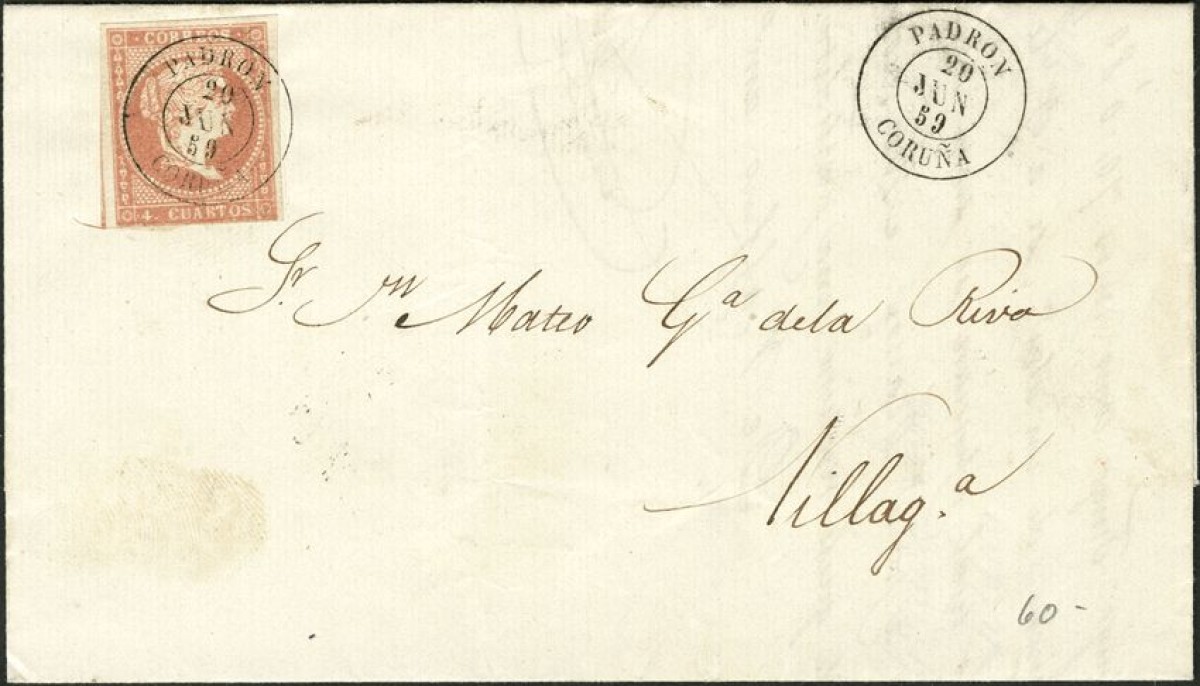 CORREOS
PADRON
20
JUN
59
CORUÑA
4. CUARTOS
PADRON
20
JUN
59
CORUÑA
Sr. Mateo Gª dela Riva
Villag.ª
60-